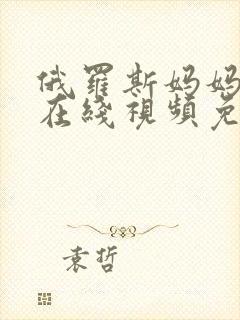 俄羅斯妈妈
在綫視頻免
袁哲